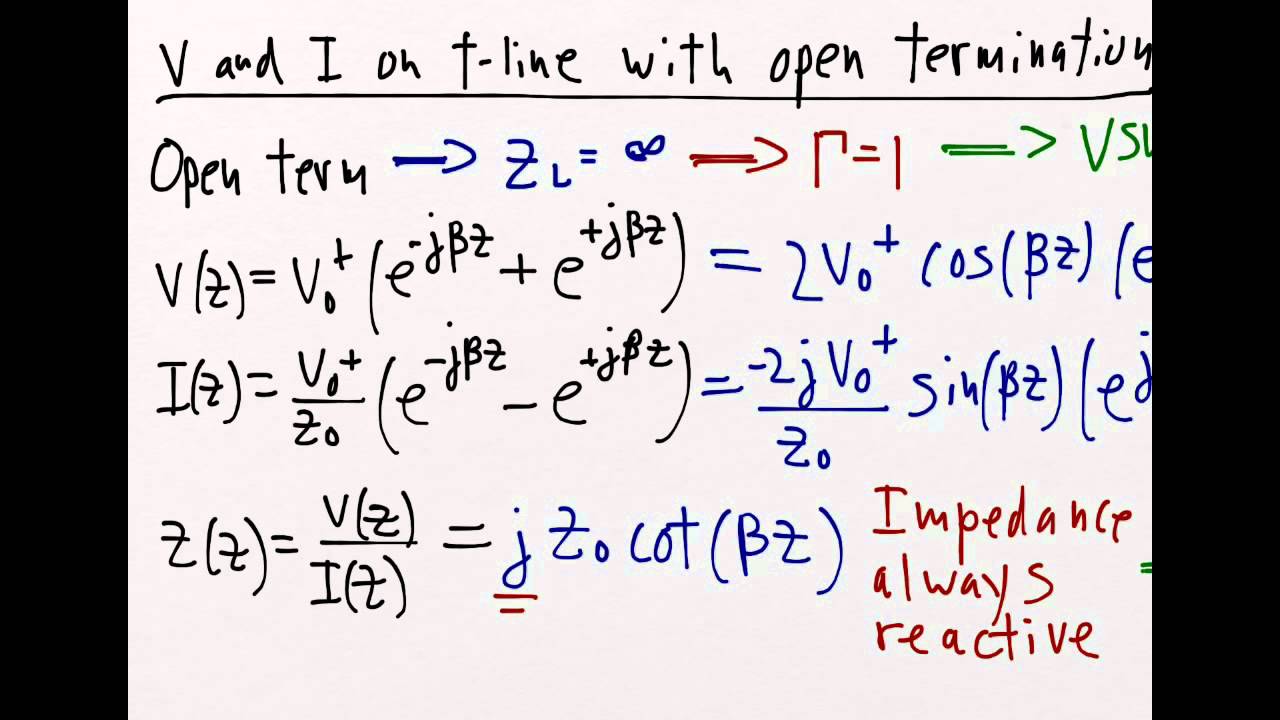 V and I on t-line with open termination
Open term => Z_L = ∞ => Γ = 1 => VSW
V(z) = V₀⁺ (e^{-jβz} + e^{+jβz}) = 2V₀⁺ cos(βz) (e
I(z) = V₀⁺/Z₀ (e^{-jβz} - e^{+jβz}) = -2jV₀⁺/Z₀ sin(βz) (e^j
Z(z) = V(z)/I(z) = j Z₀ cot(βz) Impedance
always =
reactive